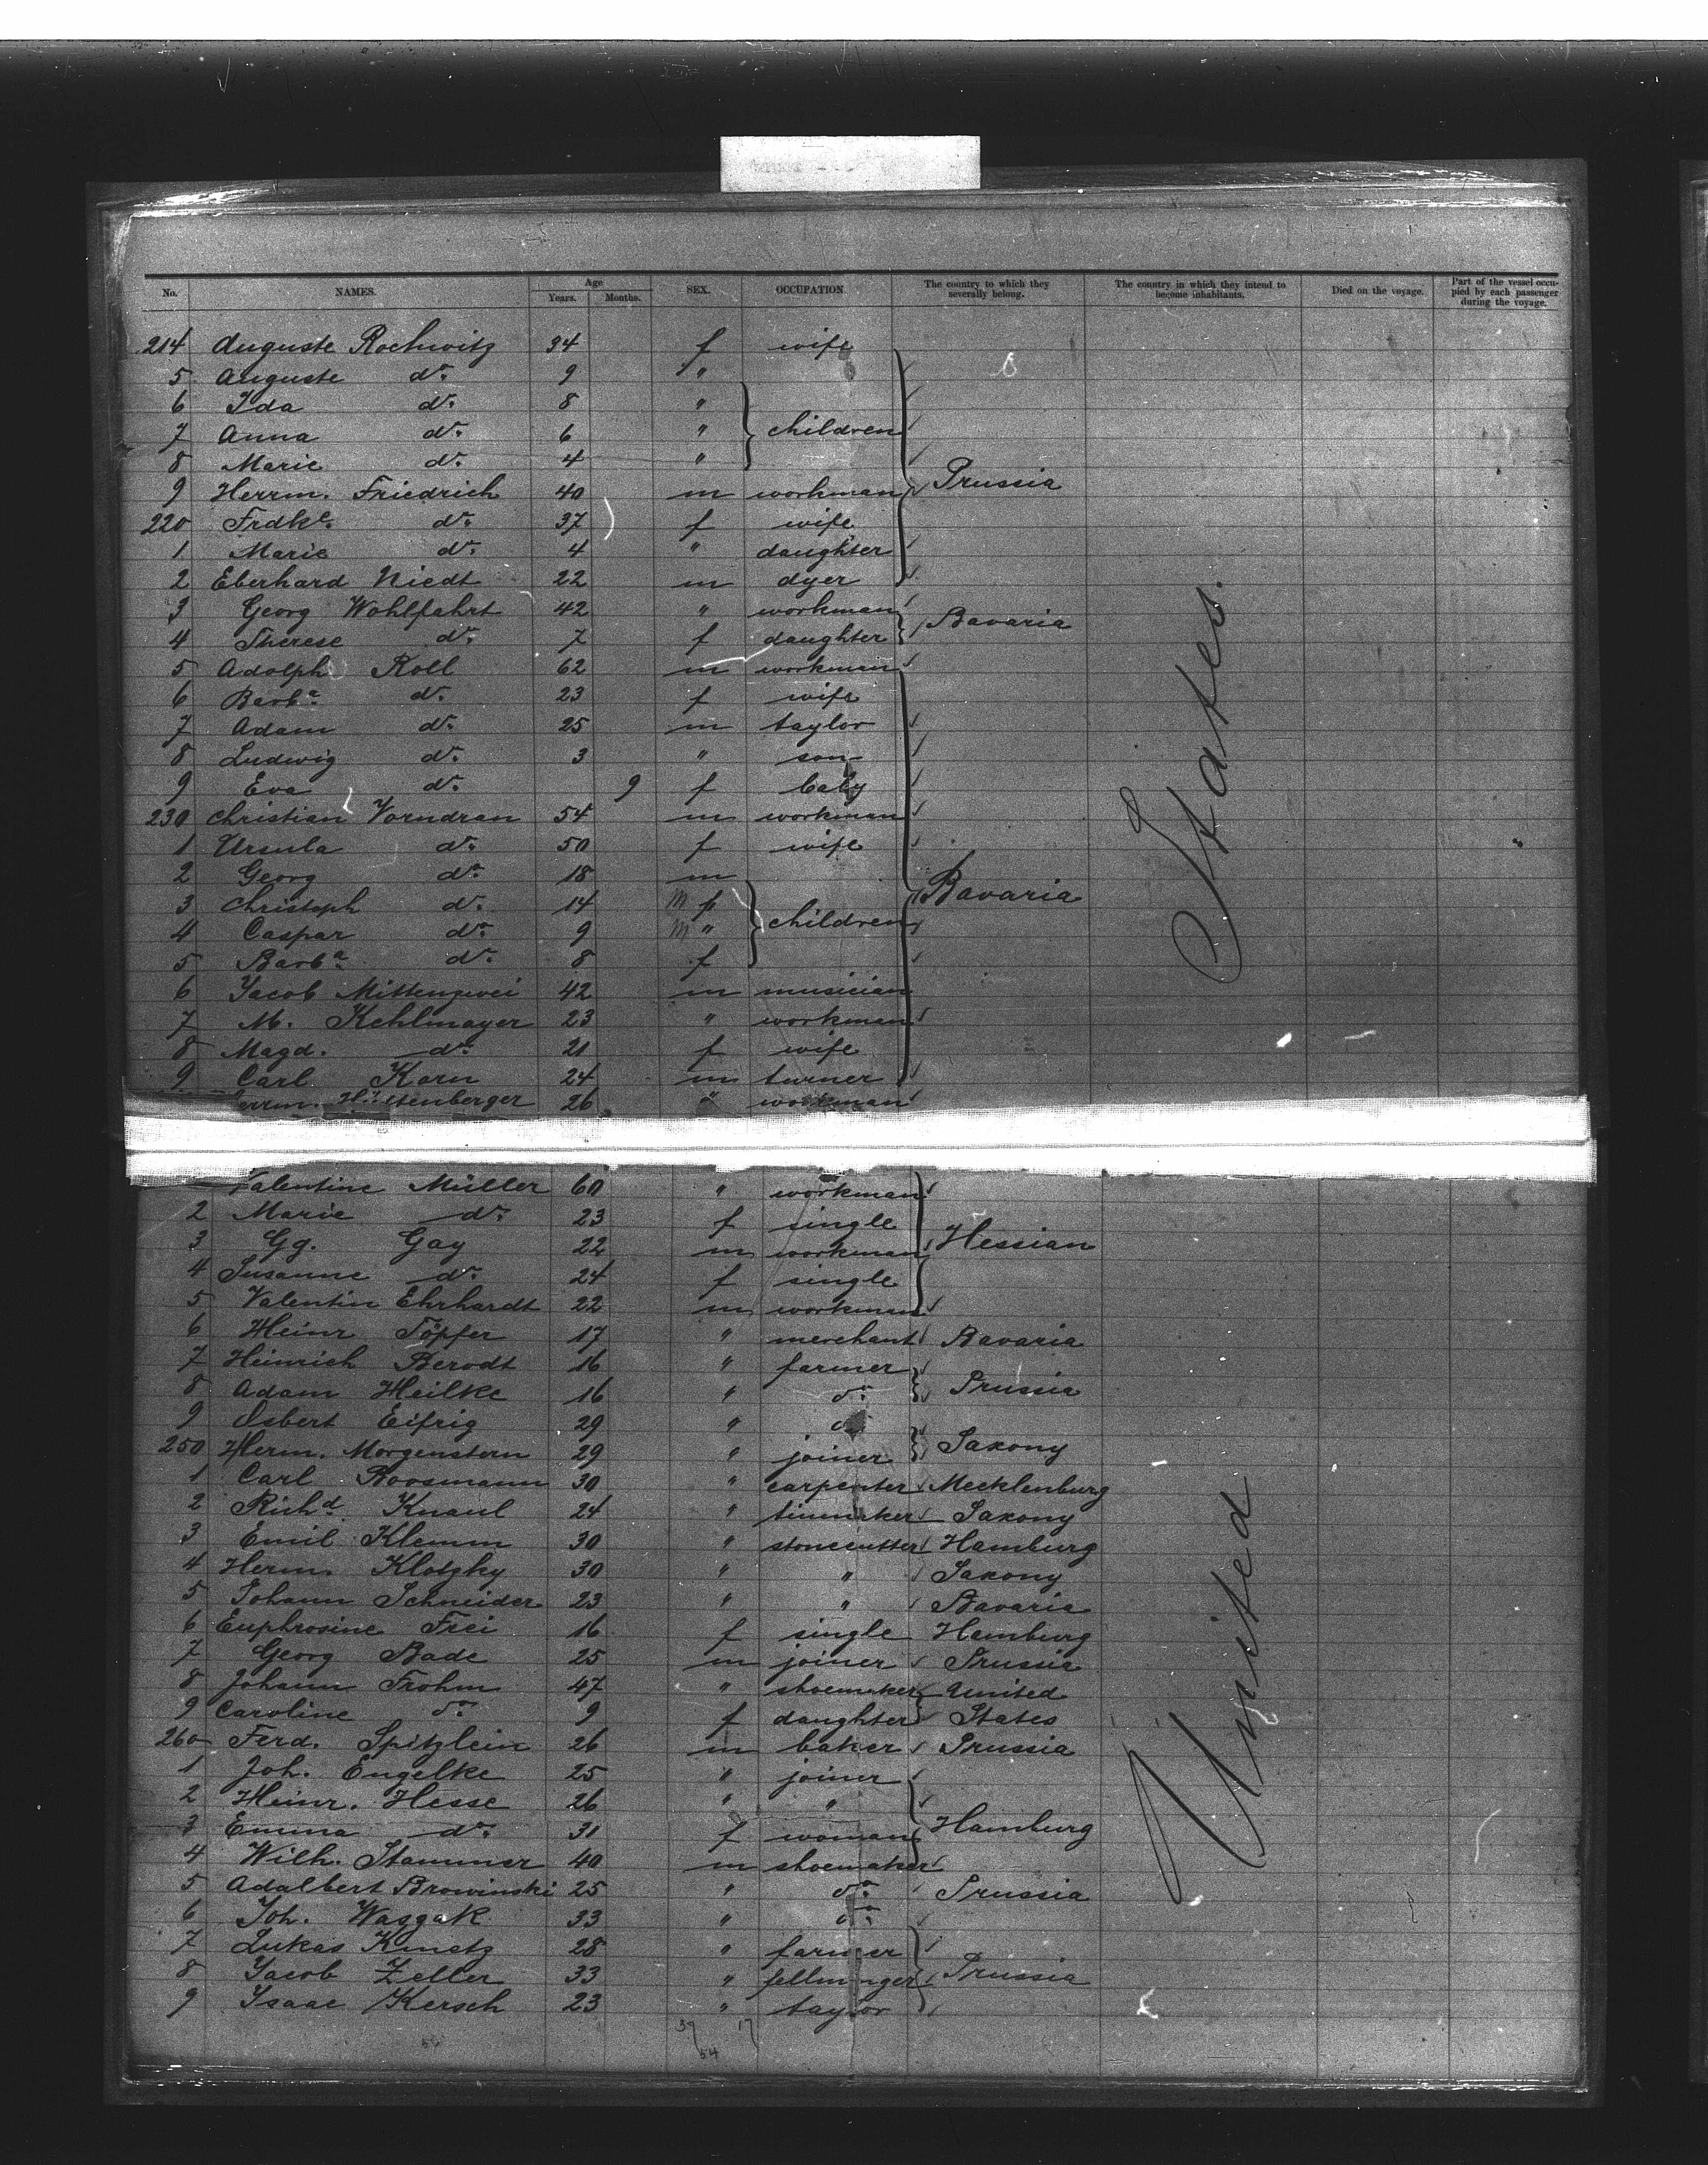 No. NAMES. Age Years. Months. SEX. OCCUPATION. The country to which they severally belong. The country in which they intend to become inhabitants. Died on the voyage. Part of the vessel occupied by each passenger during the voyage.
214 Auguste Rochwitz 34 f wife
5 Auguste do. 9 "
6 Ida do. 8 "
7 Anna do. 6 " children
8 Marie do. 4 "
9 Herrm. Friedrich 40 m workman Prussia
220 Frdke. do. 37 f wife
1 Marie do. 4 " daughter
2 Eberhard Niedt 22 m dyer
3 Georg Wohlfahrt 42 " workman Bavaria
4 Therese do. 7 f daughter
5 Adolph Roll 62 m workman
6 Barba. do. 23 f wife
7 Adam do. 25 m taylor
8 Ludwig do. 3 " son
9 Eva do. 9 f baby
230 Christian Vorndran 54 m workman
1 Ursula do. 50 f wife
2 Georg do. 18 m
3 Christoph do. 14 M f children Bavaria
4 Caspar do. 9 M "
5 Barba. do. 8 f
6 Jacob Mittenzwei 42 m musician
7 M. Kehlmayer 23 " workman
8 Magd. do. 21 f wife
9 Carl Korn 24 m turner
26 " workman
Valentine Müller 60 " workman
2 Marie do. 23 f single
3 Gg. Gay 22 m workman Hessian
4 Susanne do. 24 f single
5 Valentin Ehrhardt 22 m workman
6 Heinr Töpfer 17 " merchant Bavaria
7 Heinrich Berodt 16 " farmer
8 Adam Heilke 16 " do. Prussia
9 Osbert Eifrig 29 " do.
250 Herm. Morgenstern 29 " joiner Saxony
1 Carl Roosmann 30 " carpenter Mecklenburg
2 Richd. Knaul 24 " Saxony
3 Emil Klemm 30 " stonecutter Hamburg
4 Herm. Klotzky 30 " " Saxony
5 Johann Schneider 23 " " Bavaria
6 Euphrosine Frei 16 f single Hamburg
7 Georg Bade 25 m joiner Prussia
8 Johann Frohm 47 " shoemaker United
9 Caroline do. 9 f daughter States
260 Ferd. Spitzlein 26 m baker Prussia
1 Joh. Engelke 25 " joiner
2 Heinr. Hesse 26 " "
3 Emma do. 31 f woman Hamburg
4 Wilh. Stammer 40 m shoemaker
5 Adalbert Browinski 25 " do. Prussia
6 Joh. Waszak 33 " do.
7 Lukas Kmetz 28 " farmer
8 Jacob Zeller 33 " Prussia
9 Isaac Kersch 23 " taylor
37 17
54
United States.